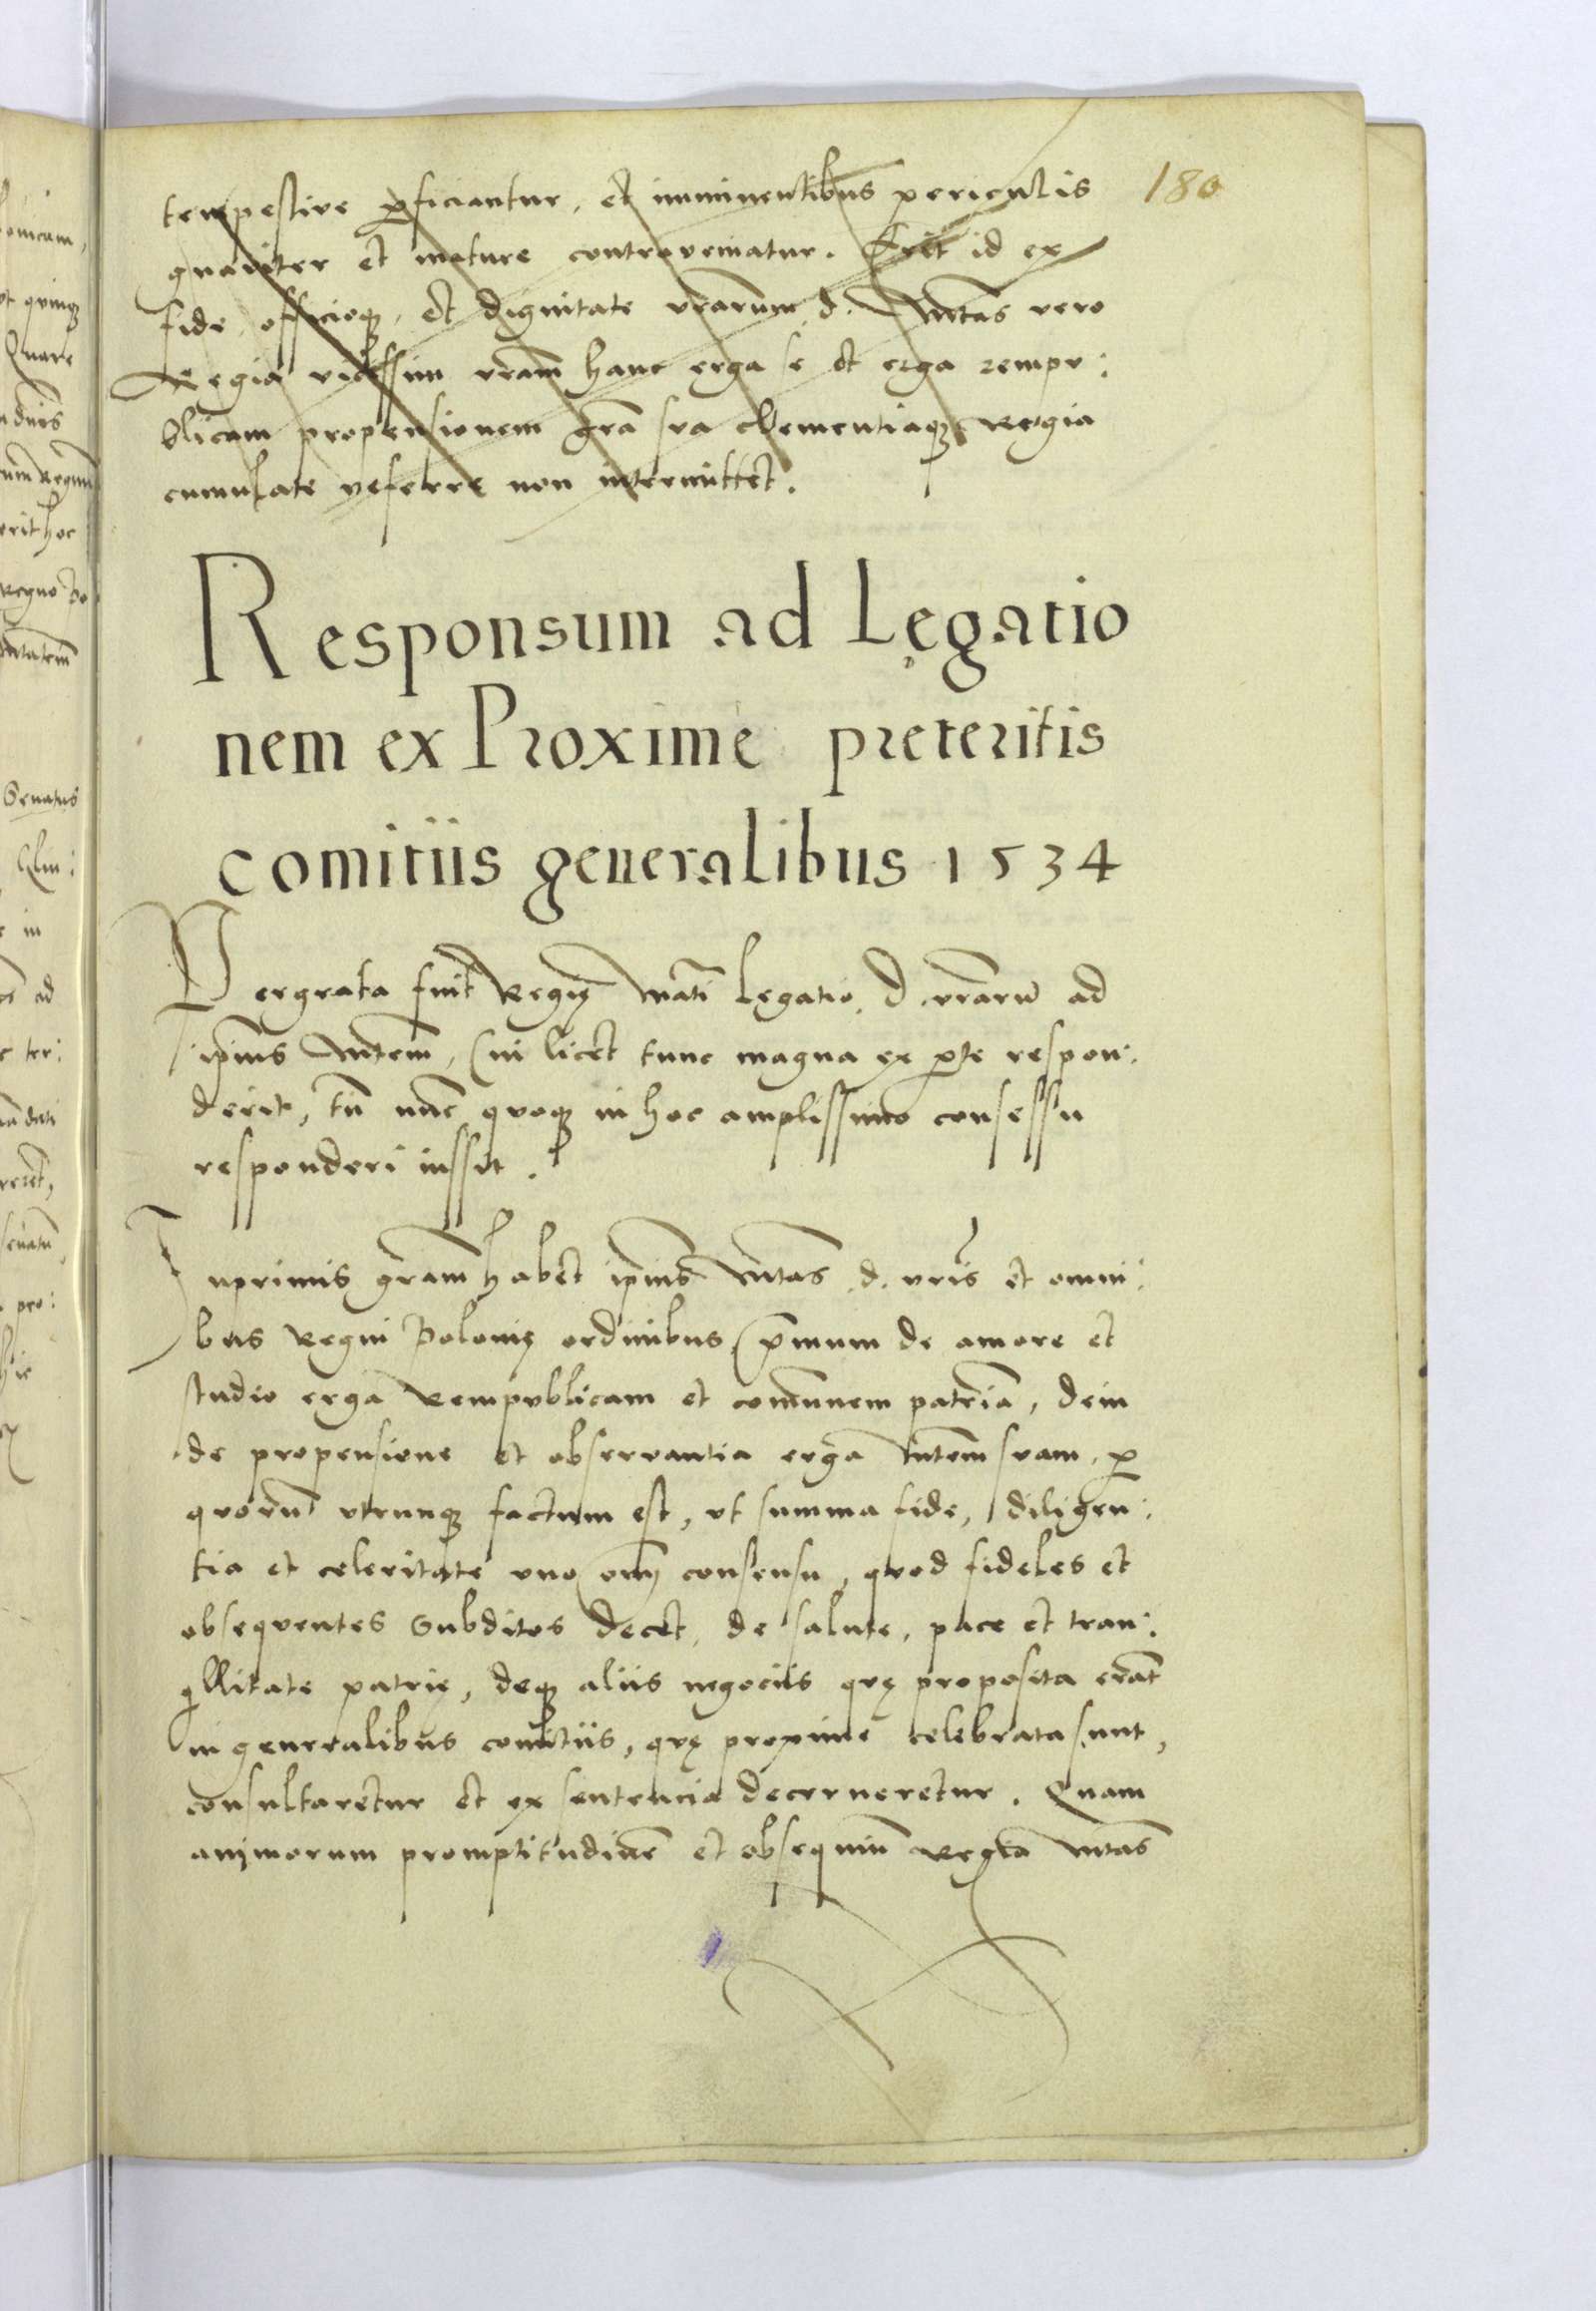 tempestive ꝑficiantur, et imminentibus periculis 180
gnaviter et mature contraveniatur. Erit id ex
fide officioqꝫ et dignitate vrarum d. Mtas vero
Regia vicissim vram hanc erga se et erga rempu:
blicam propensionem gra sua clementiaqꝫ Regia
cumulate referre non intermittet.
Responsum ad Legatio
nem ex Proxime preteritis
comitiis generalibus 1534
Pergrata fuit Regię Mati Legatio D. vrarū ad
ipius Mtem, Cui licet tunc magna ex ꝑte respon:
derit, tn̄ nūc quoqꝫ in hoc amplissimo consessu
responderi iussit.
Inprimis gram habet ipius Mtas d. vris et omni:
bus Regni Polonię ordinibus, pmum de amore et
studio erga Rempublicam et comunem patriā, dein
de propensione et observantia erga Mtem suam, ꝑ
quorū utrunqꝫ factum est, ut summa fide, diligen:
tia et celeritate uno om̄ consensu, quod fideles et
obsequentes Subditos decet, de salute, pace et tran:
qllitate patrię, deqꝫ aliis negociis quę proposita erāt
in generalibus comitiis, quę proxime celebrata sunt,
consultaretur et ex sentencia decerneretur. Quam
animorum promptitudinē et obsequiū Regia Mtas